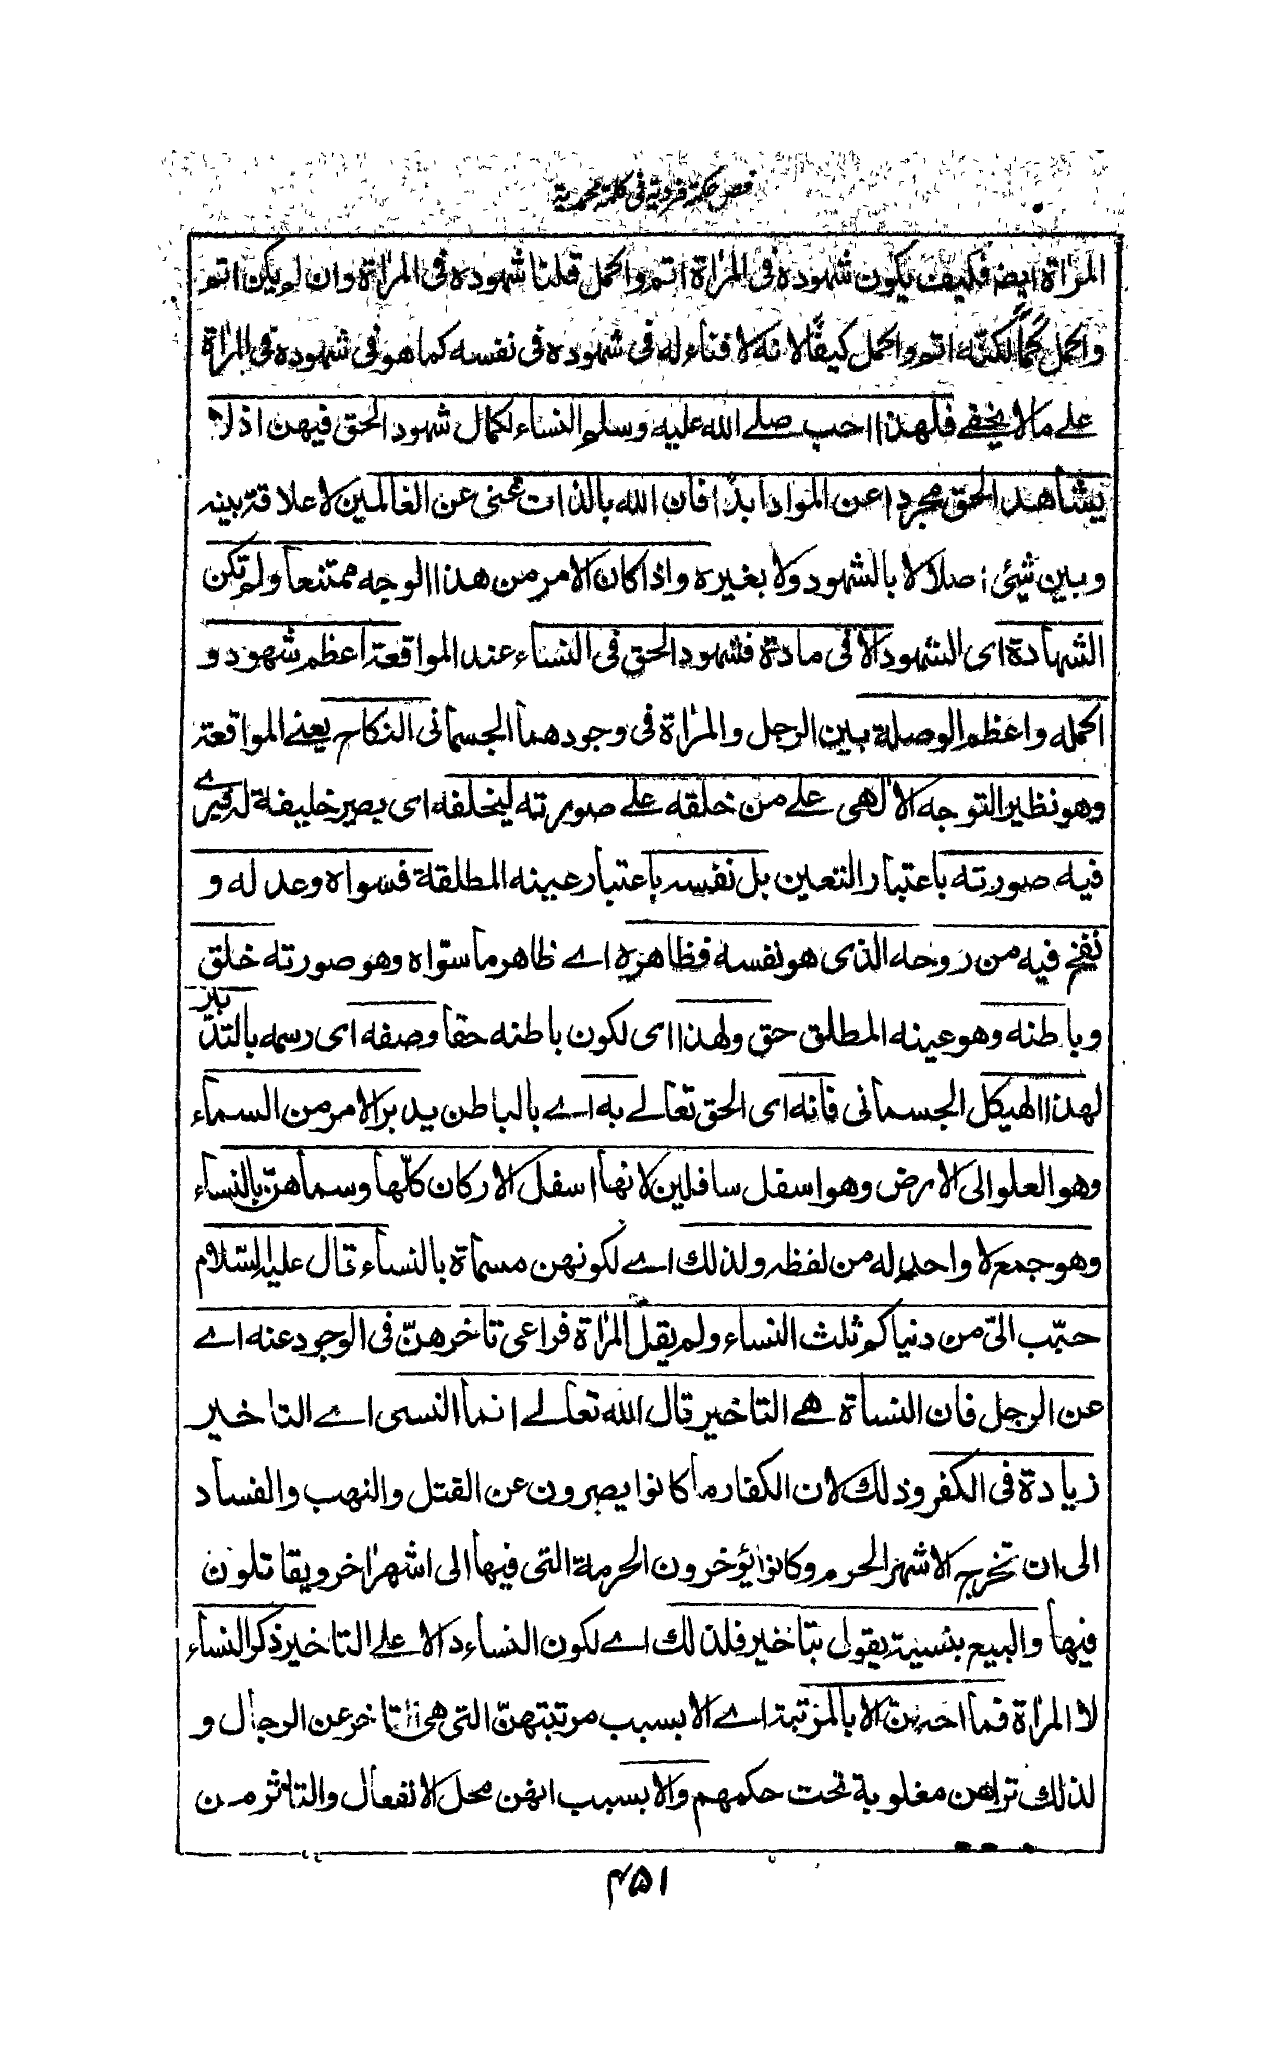 فص حكمة فردية في كلمة محمدية
المرأة ايضا فكيف يكون شهوده فى المرأة اتم واكمل قلنا شهوده فى المرأة وان لم يكن اتم
واكمل كمّاً لكنّه اتم واكمل كيفًا لانه لا فناء له فى شهوده فى نفسه كما هو فى شهوده فى المرأة
علے ما لا يخفے فلهذا احب صلے الله عليه وسلم النساء لكمال شهود الحق فيهن اذ لا
يشاهد الحق مجردا عن المواد ابدًا فان الله بالذات غنى عن العالمين لا علاقة بينه
وبين شئ اصلا لا بالشهود ولا بغيره واذا كان الامر من هذا الوجه ممتنعا ولم تكن
الشهادة اى الشهود الا فى مادة فشهود الحق فى النساء عند المواقعة اعظم شهود و
اكمله واعظم الوصلة بين الرجل والمرأة فى وجودهما الجسمانى النكاح يعنے المواقعة
وهو نظير التوجه الالهى علے من خلقه علے صورته ليخلفه اى يصير خليفة له فيرے
فيه صورته باعتبار التعين بل نفسه باعتبار عينه المطلقة فسواه وعدله و
نفخ فيه من روحه الذى هو نفسه فظاهره اے ظاهر ما سوّاه وهو صورته خلق
وباطنه وهو عينه المطلق حق ولهذا اى لكون باطنه حقا وصفه اى رسمه بالتدبير
لهذا الهيكل الجسمانى فانه اى الحق تعالے به اے بالباطن يدبر الامر من السماء
وهو العلو الى الارض وهو اسفل سافلين لانها اسفل الاركان كلّها وسماهنّ بالنساء
وهو جمع لا واحد له من لفظه ولذلك اے لكونهن مسماة بالنساء قال عليه السّلام
حبّب الىّ من دنياكم ثلث النساء ولم يقل المرأة فراعى تاخرهنّ فى الوجود عنه اے
عن الرجل فان النسأة هے التاخير قال الله تعالے انما النسى اے التاخير
زيادة فى الكفر وذلك لان الكفار ما كانوا يصبرون عن القتل والنهب والفساد
الى ان تخرج الاشهر الحرم وكانوا يؤخرون الحرمة التى فيها الى اشهر اخر ويقاتلون
فيها والبيع بنسيئة يقول بتاخير فلذلك اے لكون النساء دالا علے التاخير ذكر النساء
لا المرأة فما احبهن الا بالمرتبة اے الا بسبب مرتبتهنّ التى هى التاخر عن الرجال و
لذلك تراهن مغلوبة تحت حكمهم والا بسبب انهن محل الانفعال والتاثر من
۴۵۱